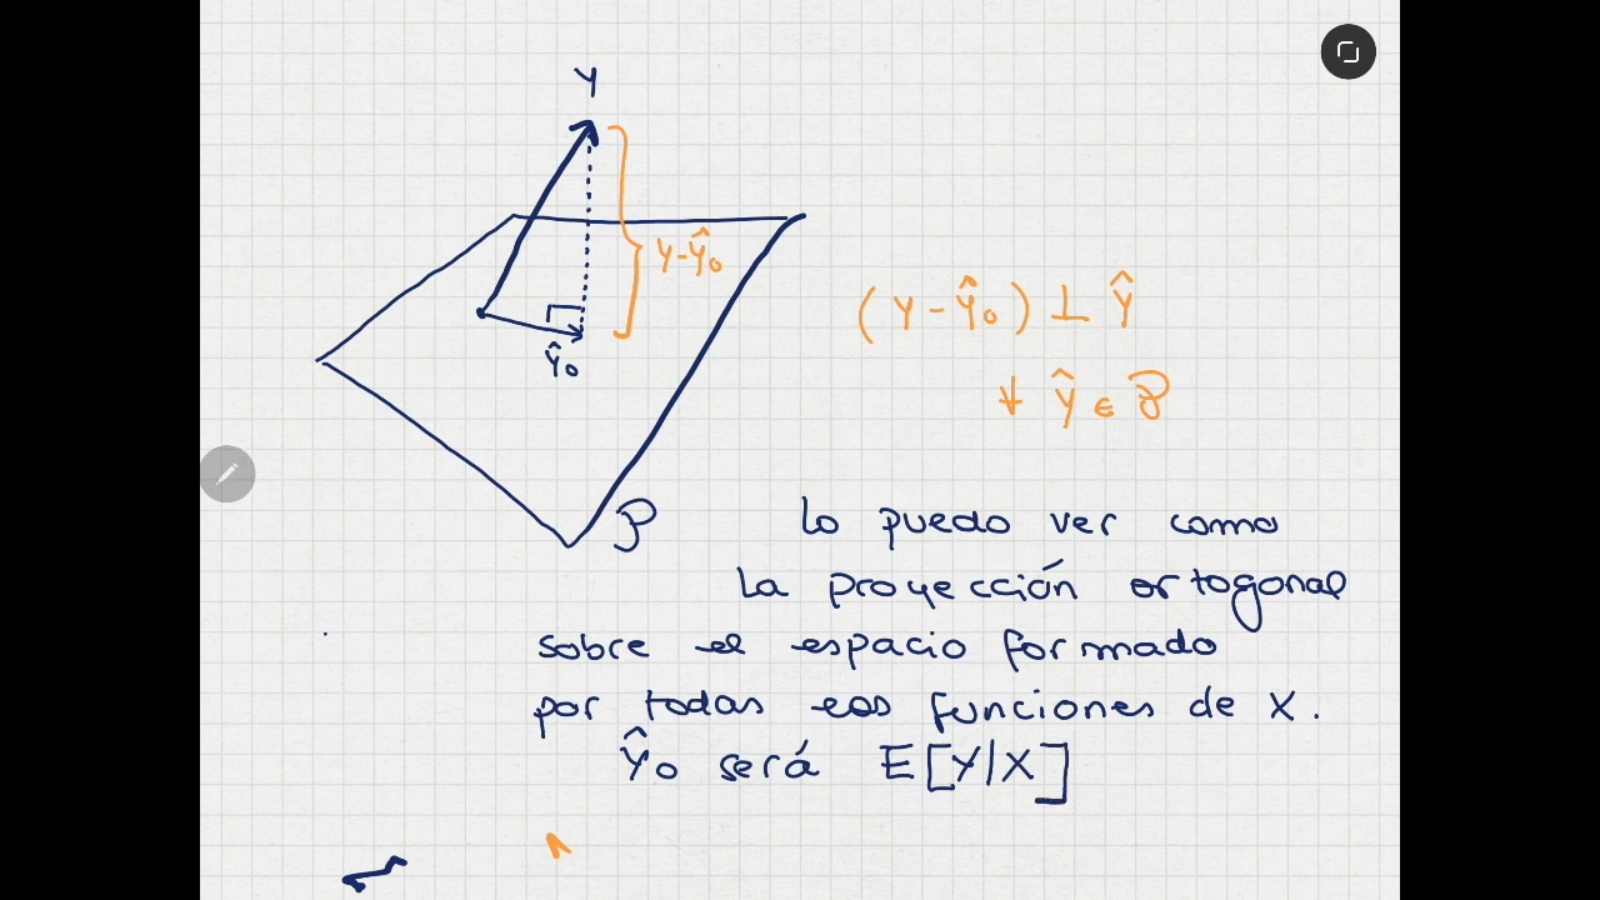 Y
Y-Ŷ₀
(Y-Ŷ₀) ⊥ Ŷ
Ŷ₀
∀ Ŷ ∈ P
P
Lo puedo ver como
la proyección ortogonal
sobre el espacio formado
por todas eas funciones de X.
Ŷ₀ será E[Y|X]